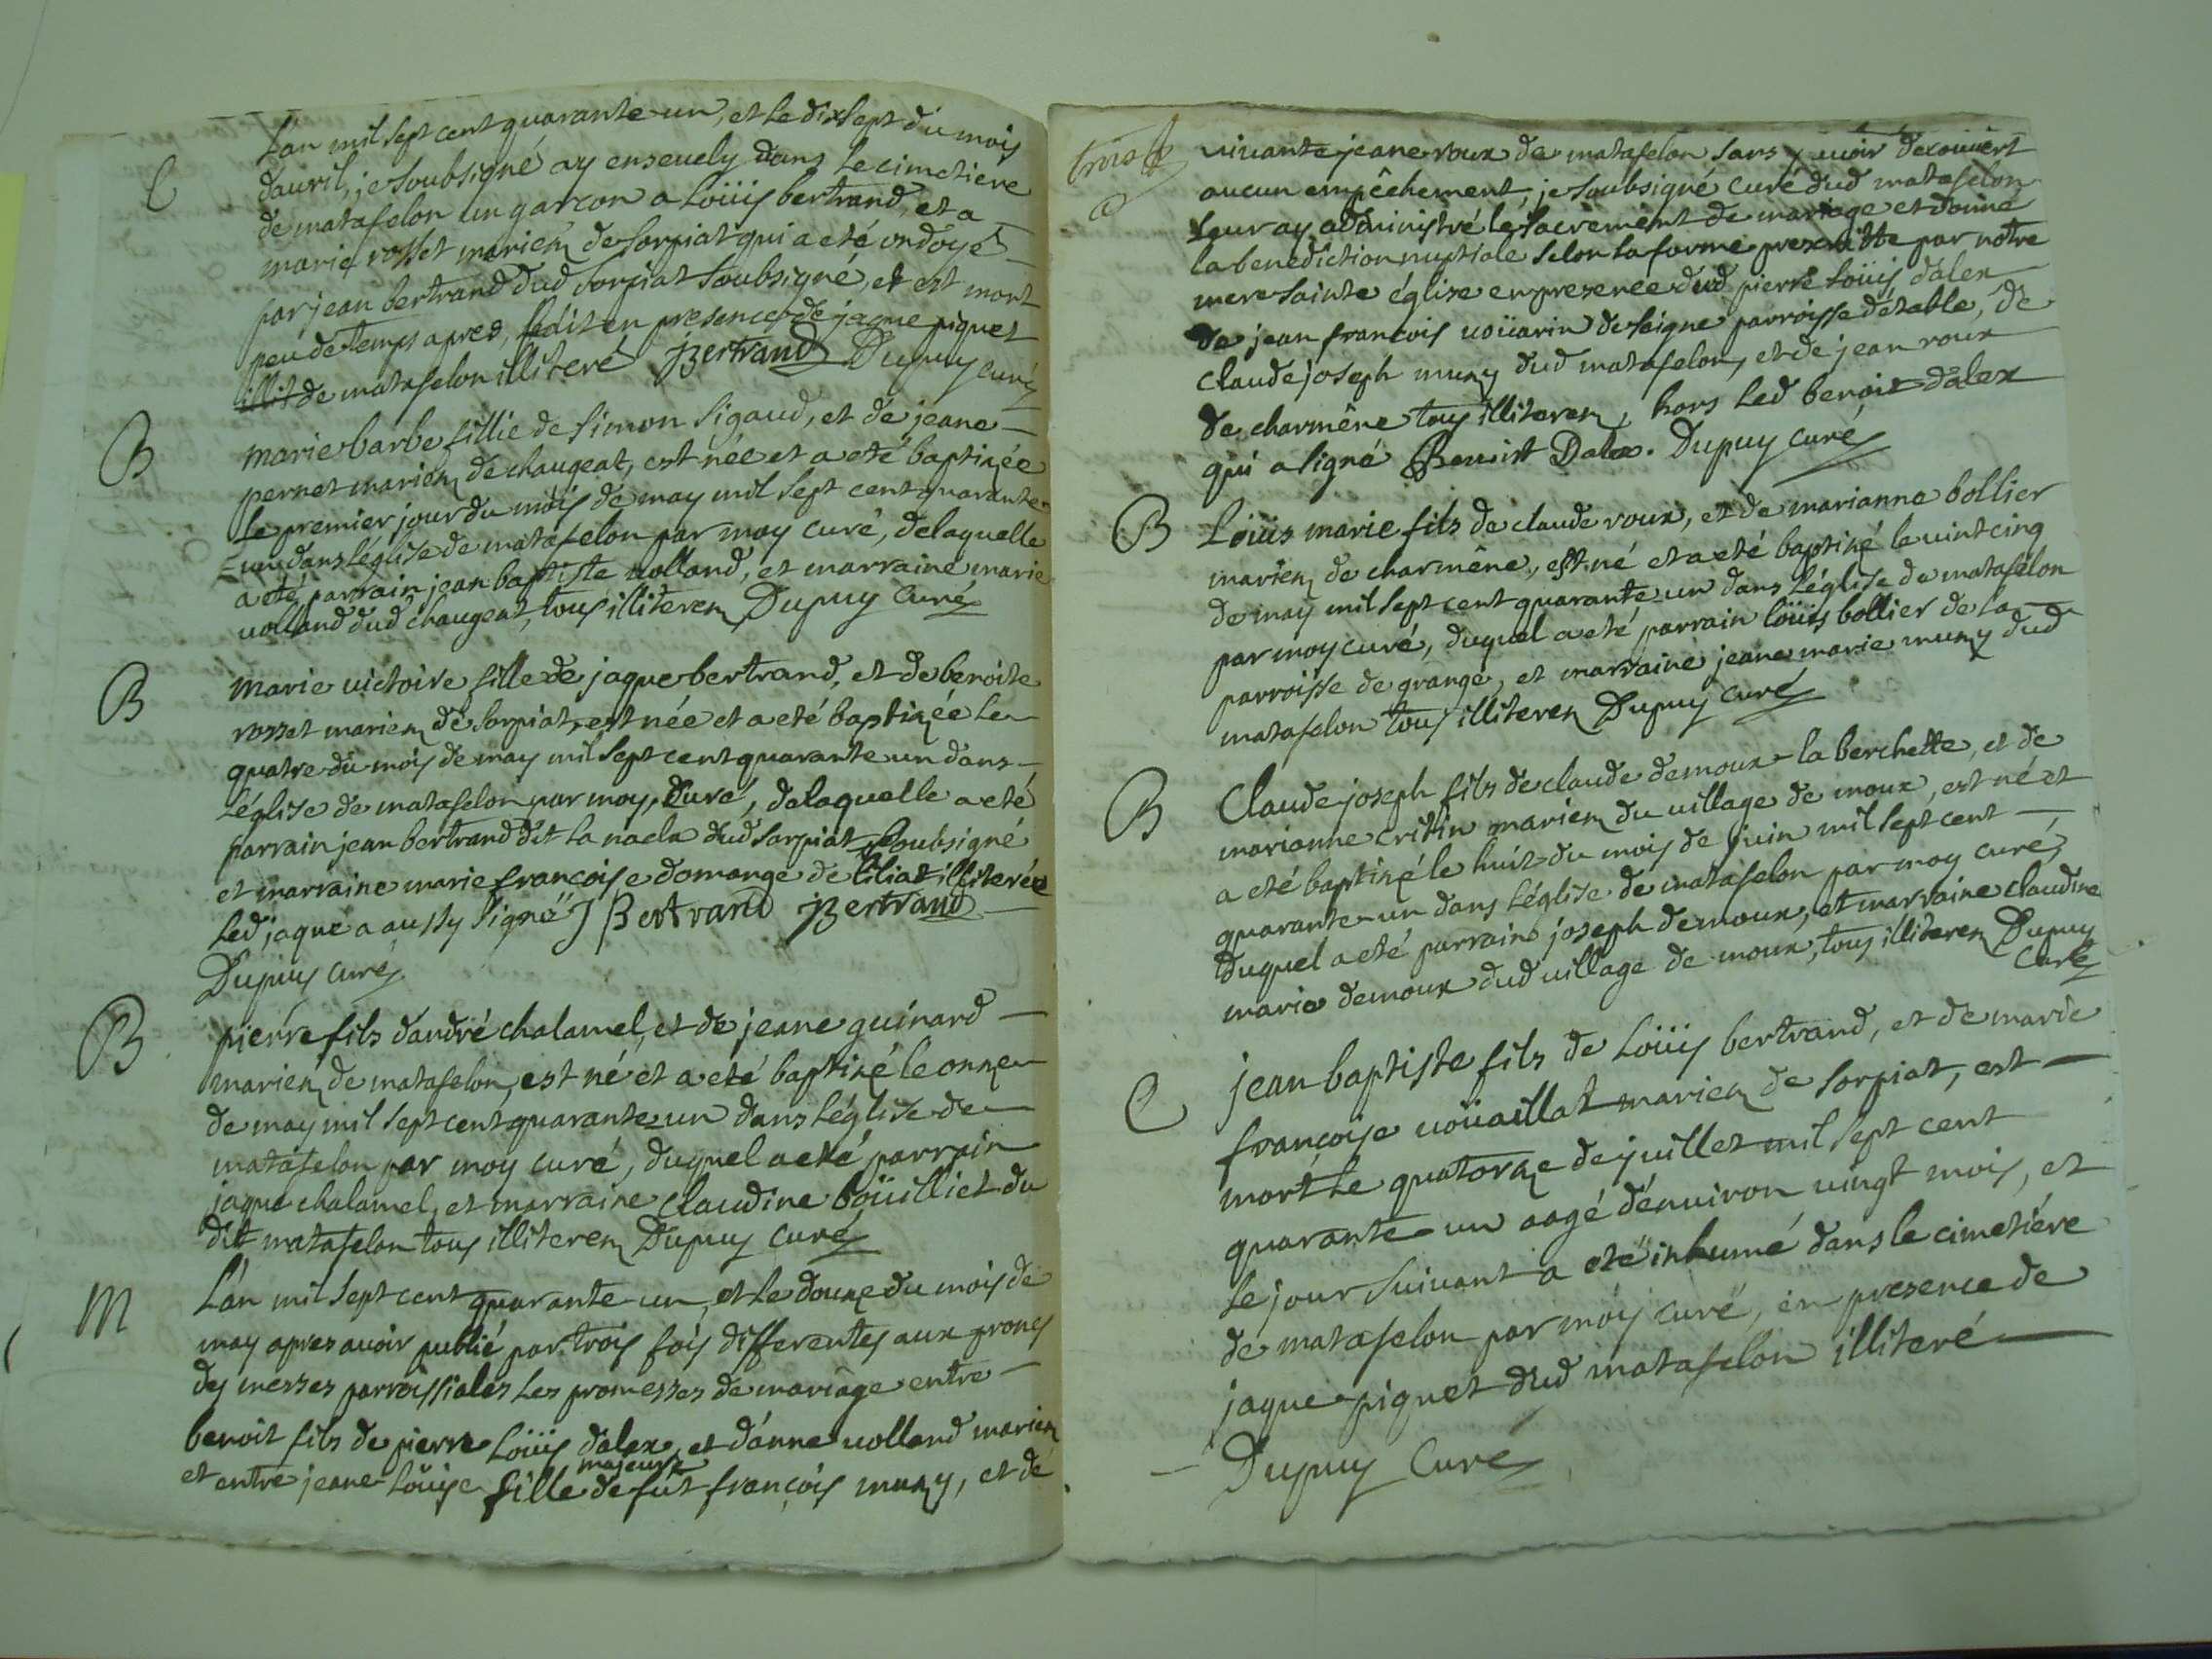 L'an mil sept cent quarante un, et le dixsept du mois
C
dauril, je soubsigné ay enseuely dans le cimetiere
de matafelon un garcon a Loüis bertrand, et a
marie rosset mariez de sorpiat qui a eté ondoyé
par jean bertrand dud sorpiat soubsigné, et est mort
peu de temps apres, fedit en presence de jaque piquet
illit de matafelon illiteré JBertrand Dupuy curé
B
marie barbe fillie de simon sigaud, et de jeane
pernet mariez de chaugeat, est née et a eté baptizée
le premier jour du mois de may mil sept cent quarante
un dans léglise de matafelon par moy curé, delaquelle
a eté parrain jean baptiste uolland, et marraine marie
uolland dud chaugeat, tous illiterez Dupuy curé
B
marie uictoire fille de jaque bertrand, et de benoite
rosset mariez de sorpiat, est née et a eté baptizée le
quatre du mois de may mil sept cent quarante un dans
léglise de matafelon par moy curé, delaquelle a eté
parrain jean bertrand dit la naela dud sorpiat soubsigné
et marraine marie francoise domange de liliat illiterée
led jaque a aussy signé J Bertrand JBertrand
Dupuy curé
B
pierre fils dandré chalamel, et de jeane guinard
mariez de matafelon, est né et a eté baptizé le onze
de may mil sept cent quarante un dans léglise de
matafelon par moy curé, duquel a eté parrain
jaque chalamel, et marraine claudine boüilliet du
dit matafelon tous illiterez Dupuy curé
M
L'an mil sept cent quarante un, et le douze du mois de
may apres auoir publié par trois fois differentes aux prones
des messes parroissiales les promesses de mariage entre
benoit fils de pierre Loüis dalex, et danne uolland mariez
majeure
et entre jeane Loüise fille de fut françois muny, et de
trois
uiuante jeane roux de matafelon sans y auoir decouuert
aucun empêchement, je soubsigné curé dud matafelon
leur ay administré le sacrement de mariage et donné
la benediction nuptiale selon la forme prescritte par notre
mere sainte église en presence dud pierre Loüis dalex
de jean francois uoüarin de seigne parroisse détable, de
claude joseph muny dud matafelon, et de jean roux
de charmêne tous illiterez, hors led benoit dalex
qui a signé Benoist Dalex. Dupuy curé
B
Loüis marie fils de claude roux, et de marianne bollier
mariez de charmêne, est né et a eté baptizé le uint cinq
de may mil sept cent quarante un dans léglise de matafelon
par moy curé, duquel a eté parrain loüis bollier de la
parroisse de grange, et marraine jeane marie muny dud
matafelon tous illiterez Dupuy curé
B
Claude joseph fils de claude demoux la berchette, et de
marianne critin mariez du uillage de moux, est né et
a eté baptizé le huit du mois de juin mil sept cent
quarante un dans léglise de matafelon par moy curé,
duquel a eté parrain joseph demoux, et marraine claudine
marie demoux dud uillage de moux, tous illiterez Dupuy
curé
C
jean baptiste fils de Loüis bertrand, et de marie
françoise uoüaillat mariez de sorpiat, est
mort le quatorze de juillet mil sept cent
quarante un aagé dénuiron uingt mois, et
le jour suiuant a eté inhumé dans le cimetiére
de matafelon par moy curé, en presence de
jaque piquet dud matafelon illiteré
Dupuy curé